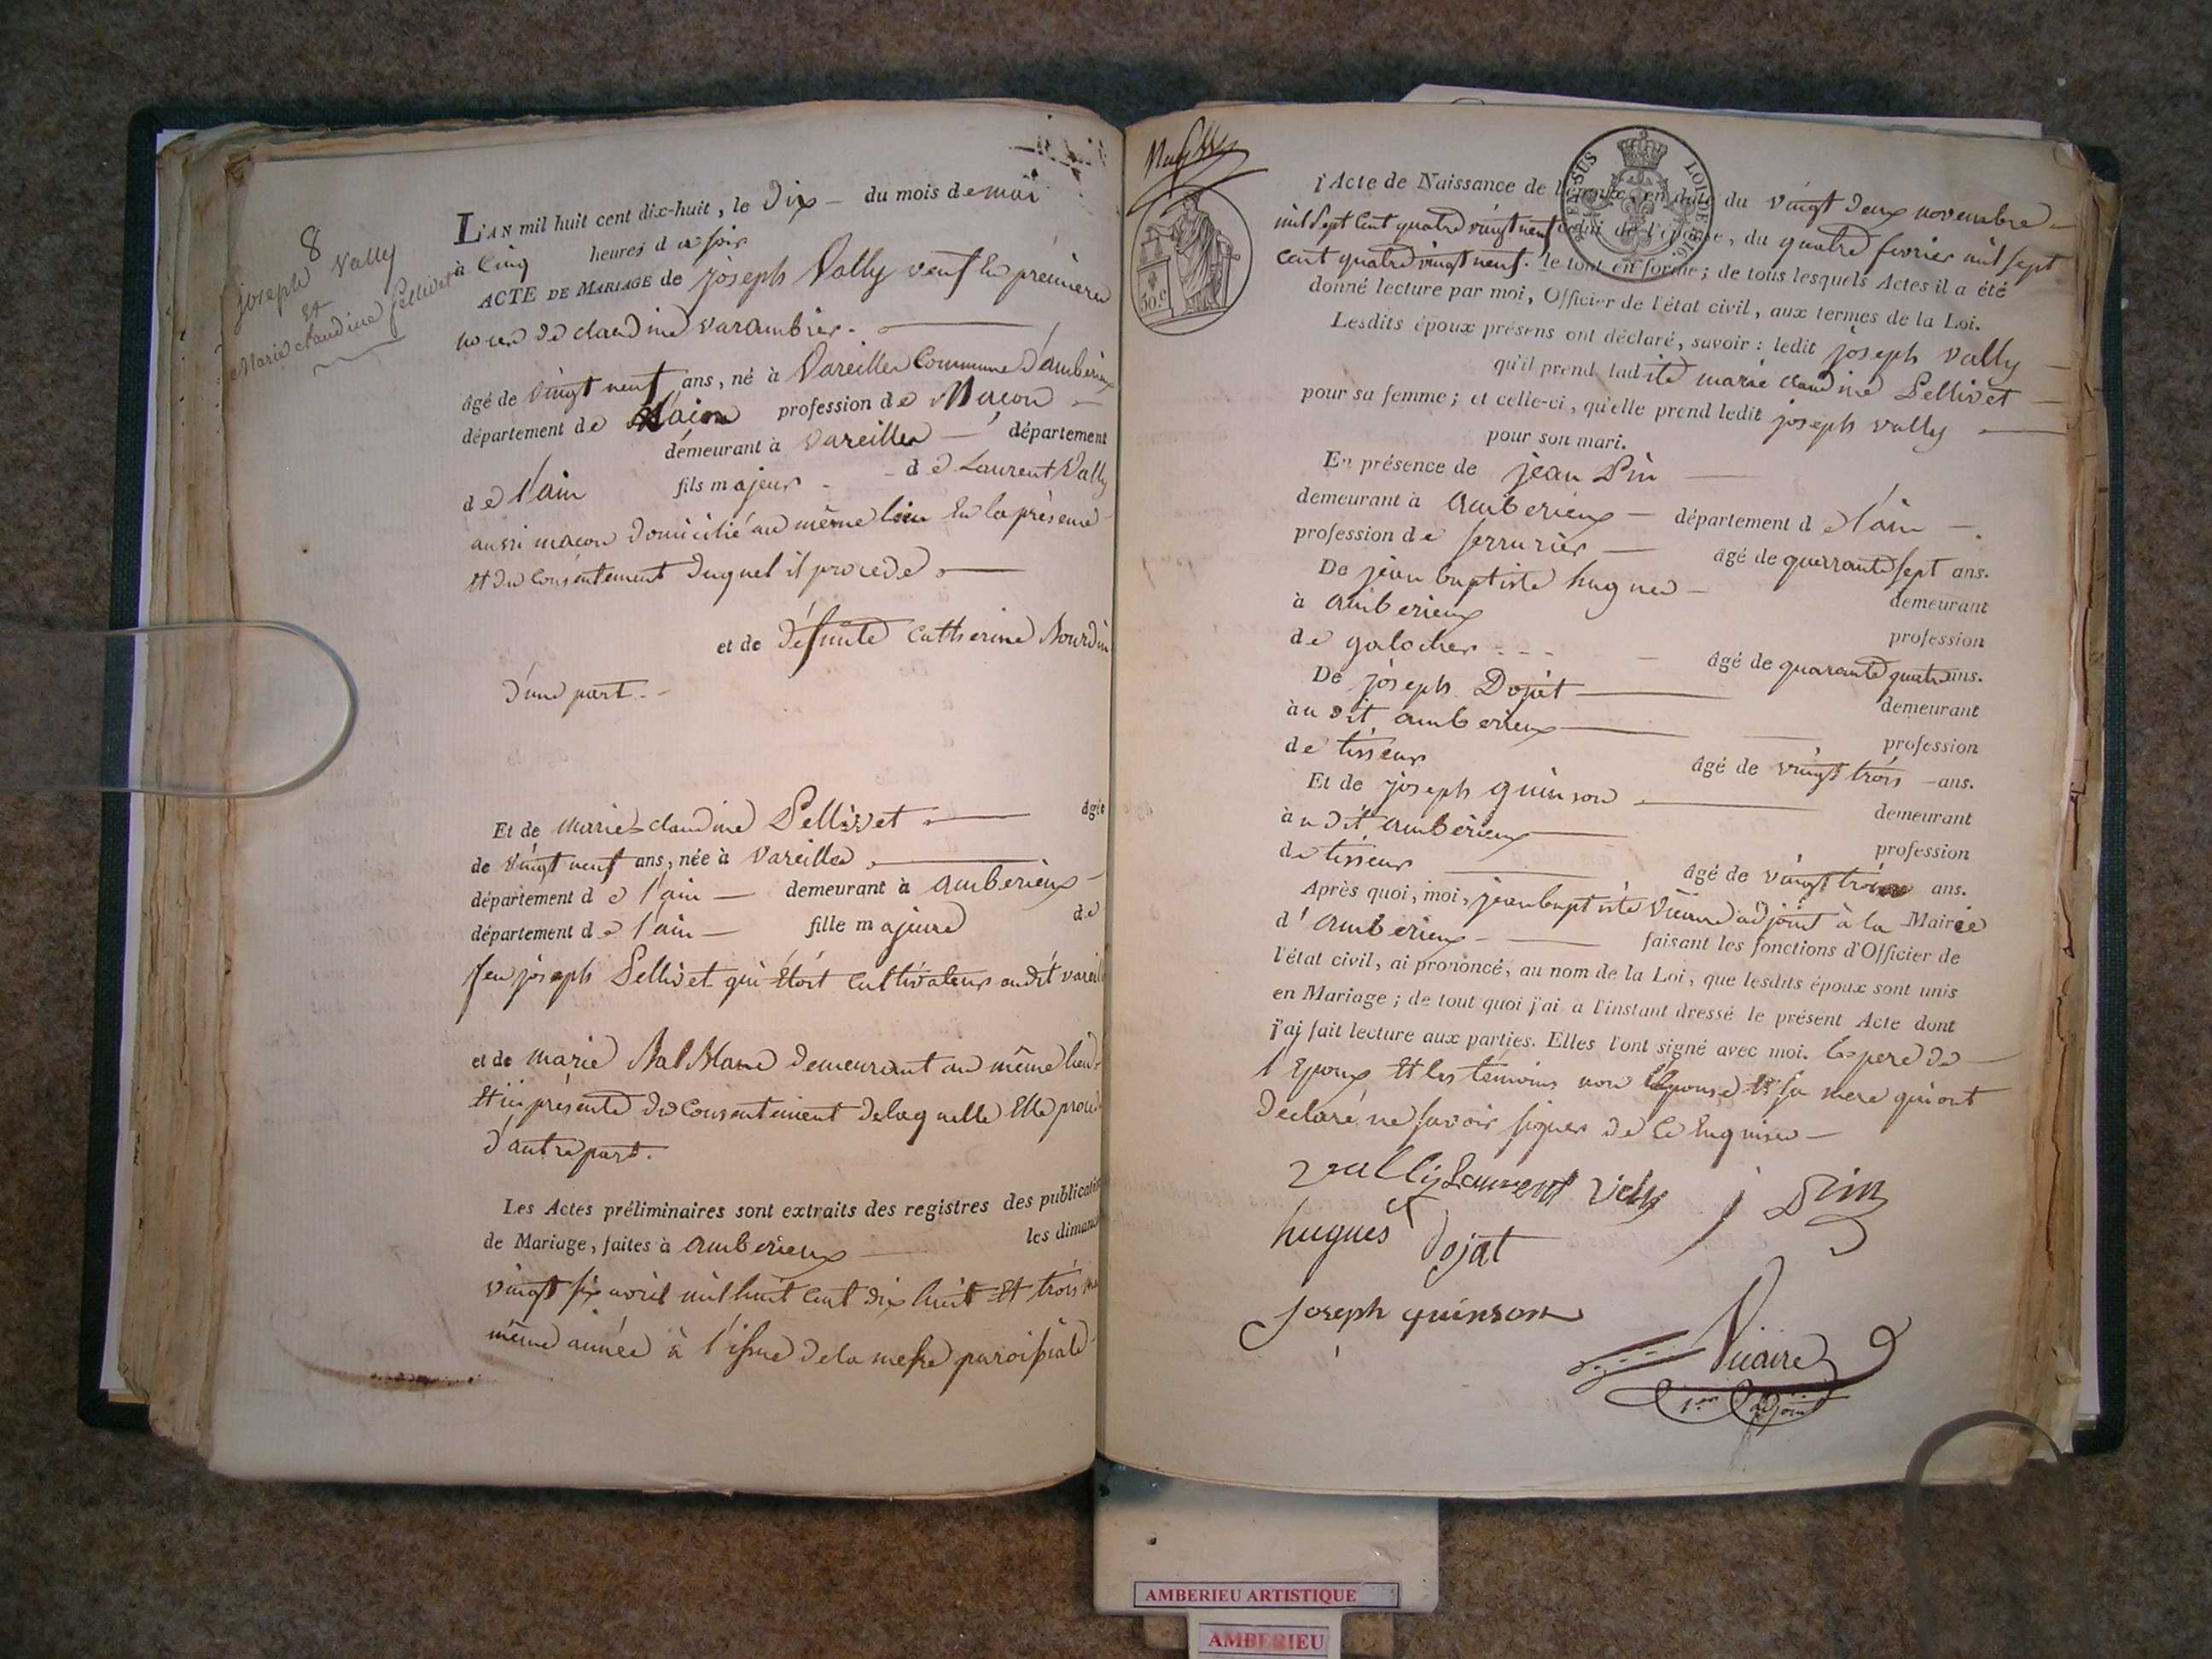 8
joseph Vally
Et
Marie claudine Pellivet
L'AN mil huit cent dix-huit, le Dix du mois de mai
à Cinq heures du soir
ACTE DE MARIAGE de joseph Vally veuf En premiere
noces de claudine varambier.
âgé de vingt neuf ans, né à Vareilles Commune d'amberieux
département de l'ain profession de Macon
demeurant à vareilles département
de l'ain fils majeur de Laurent Vally
aussi macon domicilié au même lieu En la présence
Et du Consentement duquel il procede
et de défunte Catherine Bourdin
d'une part.
Et de marie claudine Pellivet âgée
de vingt neuf ans, née à Vareilles
département de l'ain demeurant à amberieux
département de l'ain fille majeure de
feu joseph Pellivet qui étoit Cultivateur audit vareille
et de marie demeurant au même lieu
Et ici présente du Consentement de laquelle Elle procede
d'autre part.
Les Actes préliminaires sont extraits des registres des publications
de Mariage, faites à amberieux les dimanc
vingt six avril mil huit Cent dix huit Et trois mai
même année à l'issue de la messe paroissiale
50.c
RECENSUS LOI DE 1816
j'Acte de Naissance de l'époux, en date du vingt deux novembre
mil sept Cent quatre vingt neuf celui de l'épouse, du quatre fevrier mil sept
cent quatre vingt neuf. le tout en forme; de tous lesquels Actes il a été
donné lecture par moi, Officier de l'état civil, aux termes de la Loi.
Lesdits époux présens ont déclaré, savoir: ledit joseph Vally
qu'il prend ladite marie claudine Pellivet
pour sa femme; et celle-ci, qu'elle prend ledit joseph vally
pour son mari.
En présence de jean Pin
demeurant à amberieux département de l'ain
profession de serrurier âgé de querrante sept ans.
De jean baptiste hugues demeurant
à amberieux profession
de galocher âgé de quarante quatre ans.
De joseph Dojat demeurant
àu dit amberieux profession
de tisseur âgé de vingt trois ans.
Et de joseph quinson demeurant
àu dit amberieux profession
de tisseur âgé de vingt trois ans.
Après quoi, moi, jean baptiste Vicaire adjoint à la Mairie
d'Amberieux faisant les fonctions d'Officier de
l'état civil, ai prononcé, au nom de la Loi, que lesdits époux sont unis
en Mariage; de tout quoi j'ai à l'instant dressé le présent Acte dont
j'aj fait lecture aux parties. Elles l'ont signé avec moi. Le pere de
l'Epoux Et les témoins non l'Epouse Et sa mere qui ont
déclaré ne savoir signer de Ce Enquises
vally Laurent Vally j Pin
hugues Dojat
joseph quinson
Vicaire
1er adjoint
AMBERIEU ARTISTIQUE
AMBERIEU